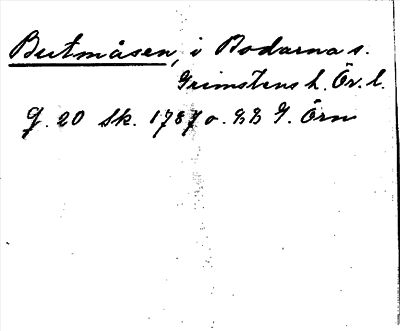 Butmåsen, i Bodarna s.
Grimstens h. Ör. l.
G. 20 Sk. 1787 o. 88 G. Örn